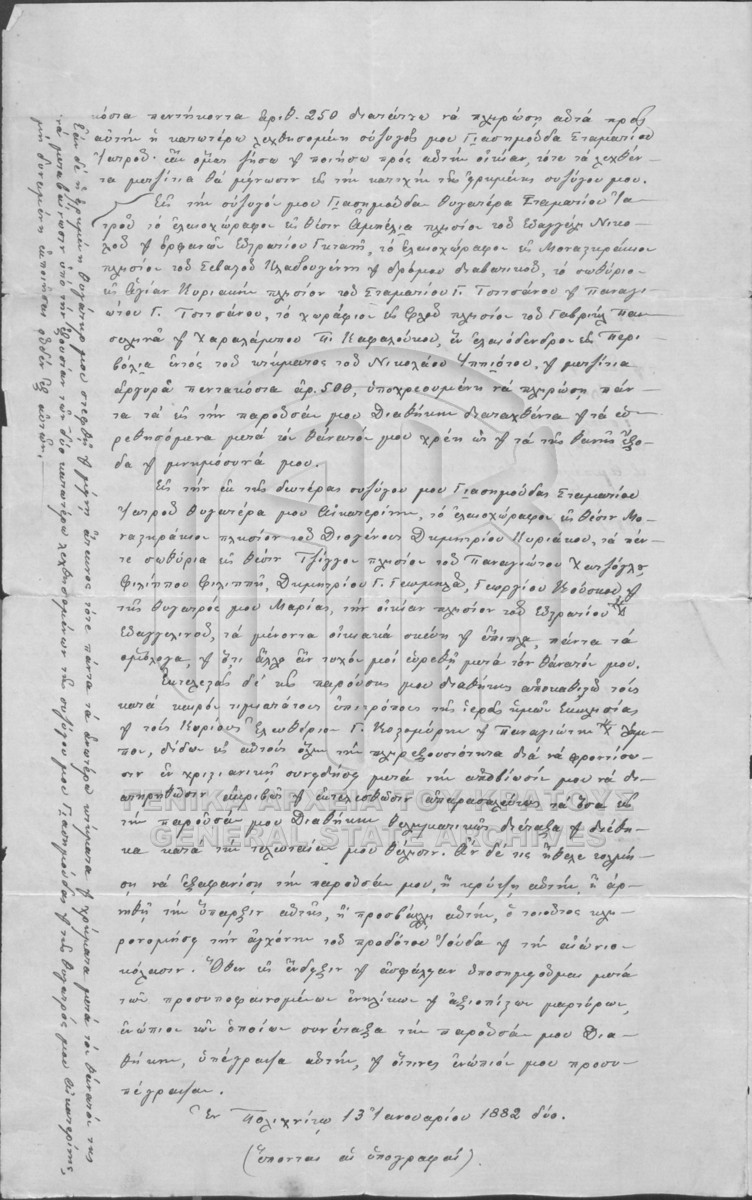 κόσια πεντήκοντα ἀριθ. 250 διατάττω νὰ πληρώσῃ αὐτὰ πρὸς
αὐτὴν ἡ κατωτέρω λεχθησομένη σύζυγός μου Γιασημούδα Σταματίου
Ἰατροῦ· ἐὰν ὅμως ζήσω καὶ ποιήσω πρὸς αὐτὴν οἰκίαν, τότε τὰ λεχθέν-
τα μετζίτια θὰ μένωσιν εἰς τὴν κατοχὴν τῆς εἰρημένης συζύγου μου.
Εἰς τὴν σύζυγόν μου Γιασημούδα θυγατέρα Σταματίου Ἰα-
τροῦ τὸ ἐλαιοχώραφον εἰς θέσιν Ἀμπέλια πλησίον τοῦ Εὐαγγέλη Νικο-
λάου καὶ ὀρφανῶν Εὐστρατίου, τὸ ἐλαιοχώραφον εἰς Μοναγκράκιον
πλησίον τοῦ Σεβαστοῦ καὶ δρόμου διαβατικοῦ, τὸ σωθύριον
εἰς Ἁγίαν Κυριακὴν πλησίον τοῦ Σταματίου Γ. Τσιτσάνου καὶ Παναγι-
ώτου Γ. Τσιτσάνου, τὸ χωράφιον εἰς πλησίον τοῦ Γαβριὴλ Πασ-
σελινᾶ καὶ Χαραλάμπου, ἓν ἐλαιόδενδρον εἰς Περι-
βόλια ἐντὸς τοῦ κτήματος τοῦ Νικολάου Ἱππιώτου, καὶ μετζίτια
ἀργυρᾶ πεντακόσια ἀρ. 500, ὑποχρεουμένη νὰ πληρώσῃ πάν-
τα τὰ εἰς τὴν παροῦσάν μου Διαθήκην διαταχθέντα καὶ τὰ εὑ-
ρεθησόμενα μετὰ τὸν θάνατόν μου χρέη ὡς καὶ τὰ τῆς θανῆς ἔξο-
δα καὶ μνημόσυνά μου.
Εἰς τὴν ἐκ τῆς δευτέρας συζύγου μου Γιασημούδας Σταματίου
Ἰατροῦ θυγατέρα μου Αἰκατερίνην, τὸ ἐλαιοχώραφον εἰς θέσιν Μο-
ναγκράκιον πλησίον τοῦ Διογένους Δημητρίου Κυριάκου, τὰ πέν-
τε σωθύρια εἰς θέσιν Τζίγγον πλησίον τοῦ Παναγιώτου Χατζόγλη,
Φιλίππου Φιλιππῆ, Δημητρίου Γ., Γεωργίου Κούσκου καὶ
τῆς θυγατρός μου Μαρίας, τὴν οἰκίαν πλησίον τοῦ Εὐστρατίου
Εὐαγγελινοῦ, τὰ μένοντα οἰκιακὰ σκεύη καὶ ἔπιπλα, πάντα τὰ
ὁμόλογα, καὶ ὅ,τι ἄλλο ἂν τυχὸν μοὶ εὑρεθῇ μετὰ τὸν θάνατόν μου.
Ἐκτελεστὰς δὲ τῆς παρούσης μου διαθήκης ἀποκαθιστῶ τοὺς
κατὰ καιρὸν τιμιωτάτους ἐπιτρόπους τῆς ἱερᾶς ἡμῶν Ἐκκλησίας
καὶ τοὺς Κυρίους Ἐλευθέριον Γ. Κοζομύρην καὶ Παναγιώτην
που, δίδω εἰς αὐτοὺς ὅλην τὴν πληρεξουσιότητα διὰ νὰ φροντίσω-
σιν ἐν χριστιανικῇ συνειδήσει μετὰ τὴν ἀποβίωσίν μου νὰ δι-
ατηρηθῶσιν ἀκριβῶς καὶ ἐκτελεσθῶσιν ἀπαρασαλεύτως τὰ ὅσα εἰς
τὴν παροῦσάν μου Διαθήκην θεληματικῶς διέταξα καὶ διέθη-
κα κατὰ τὴν τελευταίαν μου θέλησιν. Ἂν δέ τις ἤθελε τολμή-
σῃ νὰ ἐξαφανίσῃ τὴν παροῦσάν μου, ἢ κρύψῃ αὐτήν, ἢ ἀρ-
νηθῇ τὴν ὕπαρξιν αὐτῆς, ἢ προσβάλῃ αὐτήν, ὁ τοιοῦτος κλη-
ρονομήσει τὴν ἀγχόνην τοῦ προδότου Ἰούδα καὶ τὴν αἰώνιον
κόλασιν. Ὅθεν εἰς ἔνδειξιν καὶ ἀσφάλειαν ὑποσημειοῦμαι μετὰ
τῶν προσυποφαινομένων ἐνηλίκων καὶ ἀξιοπίστων μαρτύρων,
ἐνώπιον τῶν ὁποίων συνέταξα τὴν παροῦσάν μου Δια-
θήκην, ὑπέγραψα αὐτήν, καὶ οἵτινες ἐνώπιόν μου προσυ-
πέγραψαν.
Ἐν Πολιχνίτῳ 13 Ἰανουαρίου 1882 δύο.
(ἕπονται αἱ ὑπογραφαί).
Ἐὰν δὲ ἡ εἰρημένη θυγάτηρ μου στεφθῇ καὶ μένῃ ἄτεκνος τότε πάντα τὰ ἀνωτέρω κτήματα καὶ χρήματα μετὰ τὸν θάνατόν της
νὰ μεταβαίνωσιν ὑπὸ τὴν ἐξουσίαν τῶν δύο κατωτέρω λεχθησομένων τῆς συζύγου μου Γιασημούδας καὶ τῆς θυγατρός μου Αἰκατερίνης,
μὴ δυναμένη ἐκποιῆσαι οὐδὲν ἐξ αὐτῶν.
ΓΕΝΙΚΑ ΑΡΧΕΙΑ ΤΟΥ ΚΡΑΤΟΥΣ
GENERAL STATE ARCHIVES